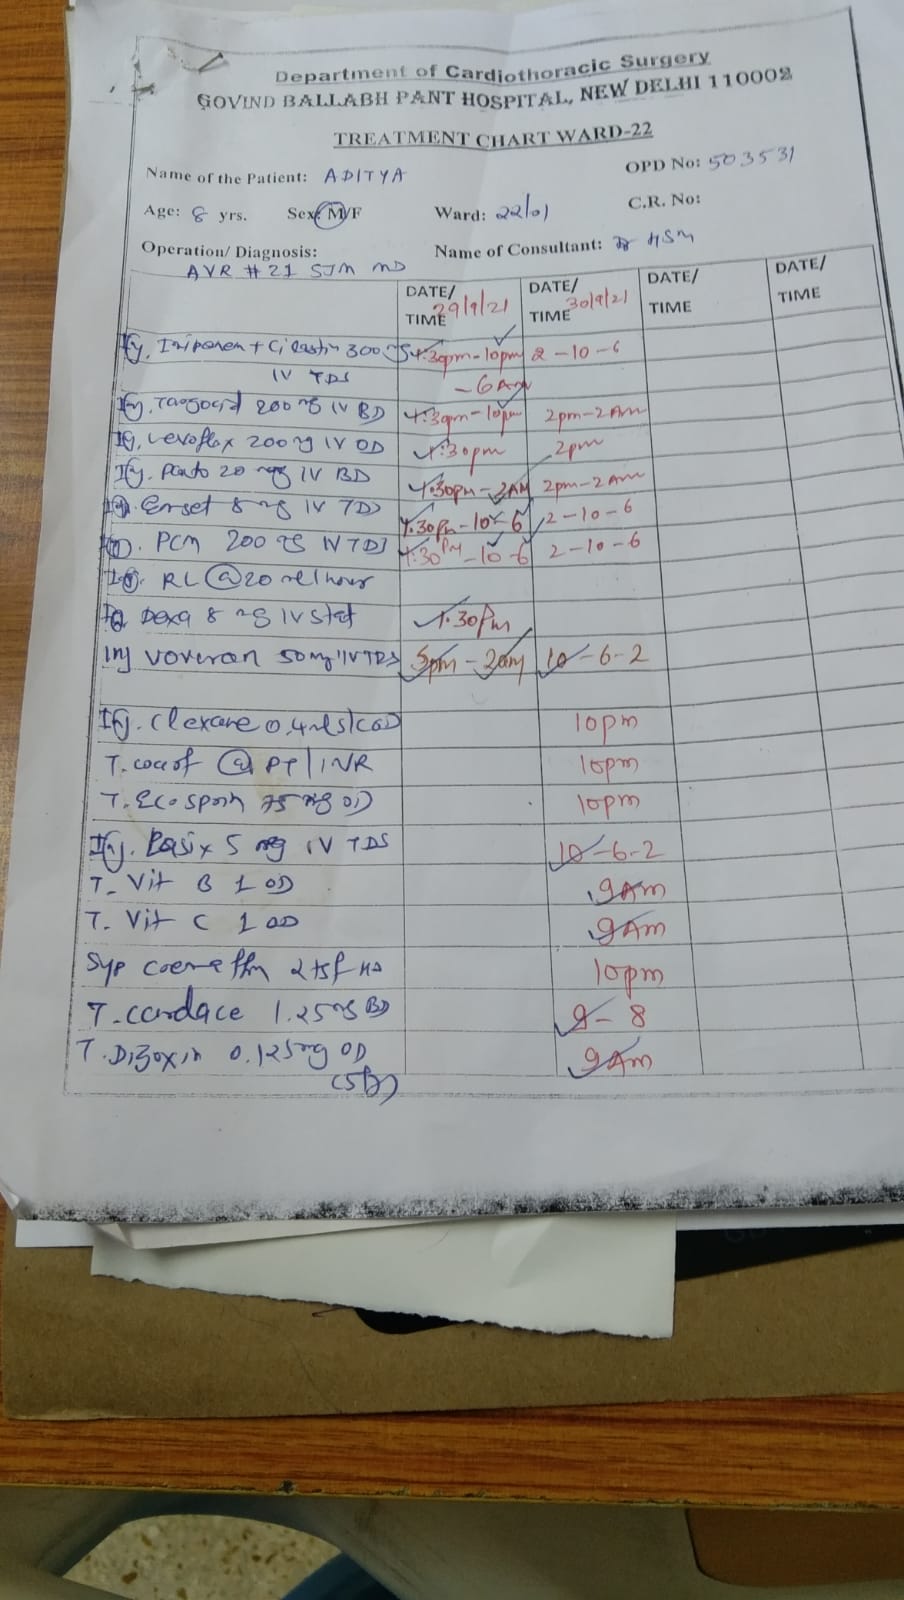 Department of Cardiothoracic Surgery
GOVIND BALLABH PANT HOSPITAL, NEW DELHI 110002
TREATMENT CHART WARD-22
Name of the Patient: ADITYA OPD No: 503531
Age: 8 yrs. Sex: M/F Ward: 22/01 C.R. No:
Operation/ Diagnosis: Name of Consultant: Dr HSM
AVR #21 SJM
DATE/ TIME 29/9/21 DATE/ TIME 30/9/21 DATE/ TIME DATE/ TIME
300 4.30pm-10pm 2-10-6
IV TDS -6AM
200 mg IV BD 4.30pm-10pm 2pm-2Am
Levoflox 200 mg IV OD 4.30pm 2pm
Inj. Panto 20 mg IV BD 4.30pm-2AM 2pm-2Am
Emset 8 mg IV TDS 4.30pm-10-6 2-10-6
PCM 200 mg IV TDS 4.30pm-10-6 2-10-6
RL @20 ml/hour
Dexa 8 mg IV stat 4.30pm
Inj Voveran 50mg IV TDS 5pm-2am 10-6-2
Inj. Clexane 0.4mls/c OD 10pm
T. @ PT/INR 10pm
T. Ecosprin 75 mg OD 10pm
Inj. Lasix 5 mg IV TDS 10-6-2
T. Vit B 1 OD 9Am
T. Vit C 1 OD 9Am
Syp 2tsf HS 10pm
T. cardace 1.25mg BD 9-8
T. Digoxin 0.125mg OD 9Am